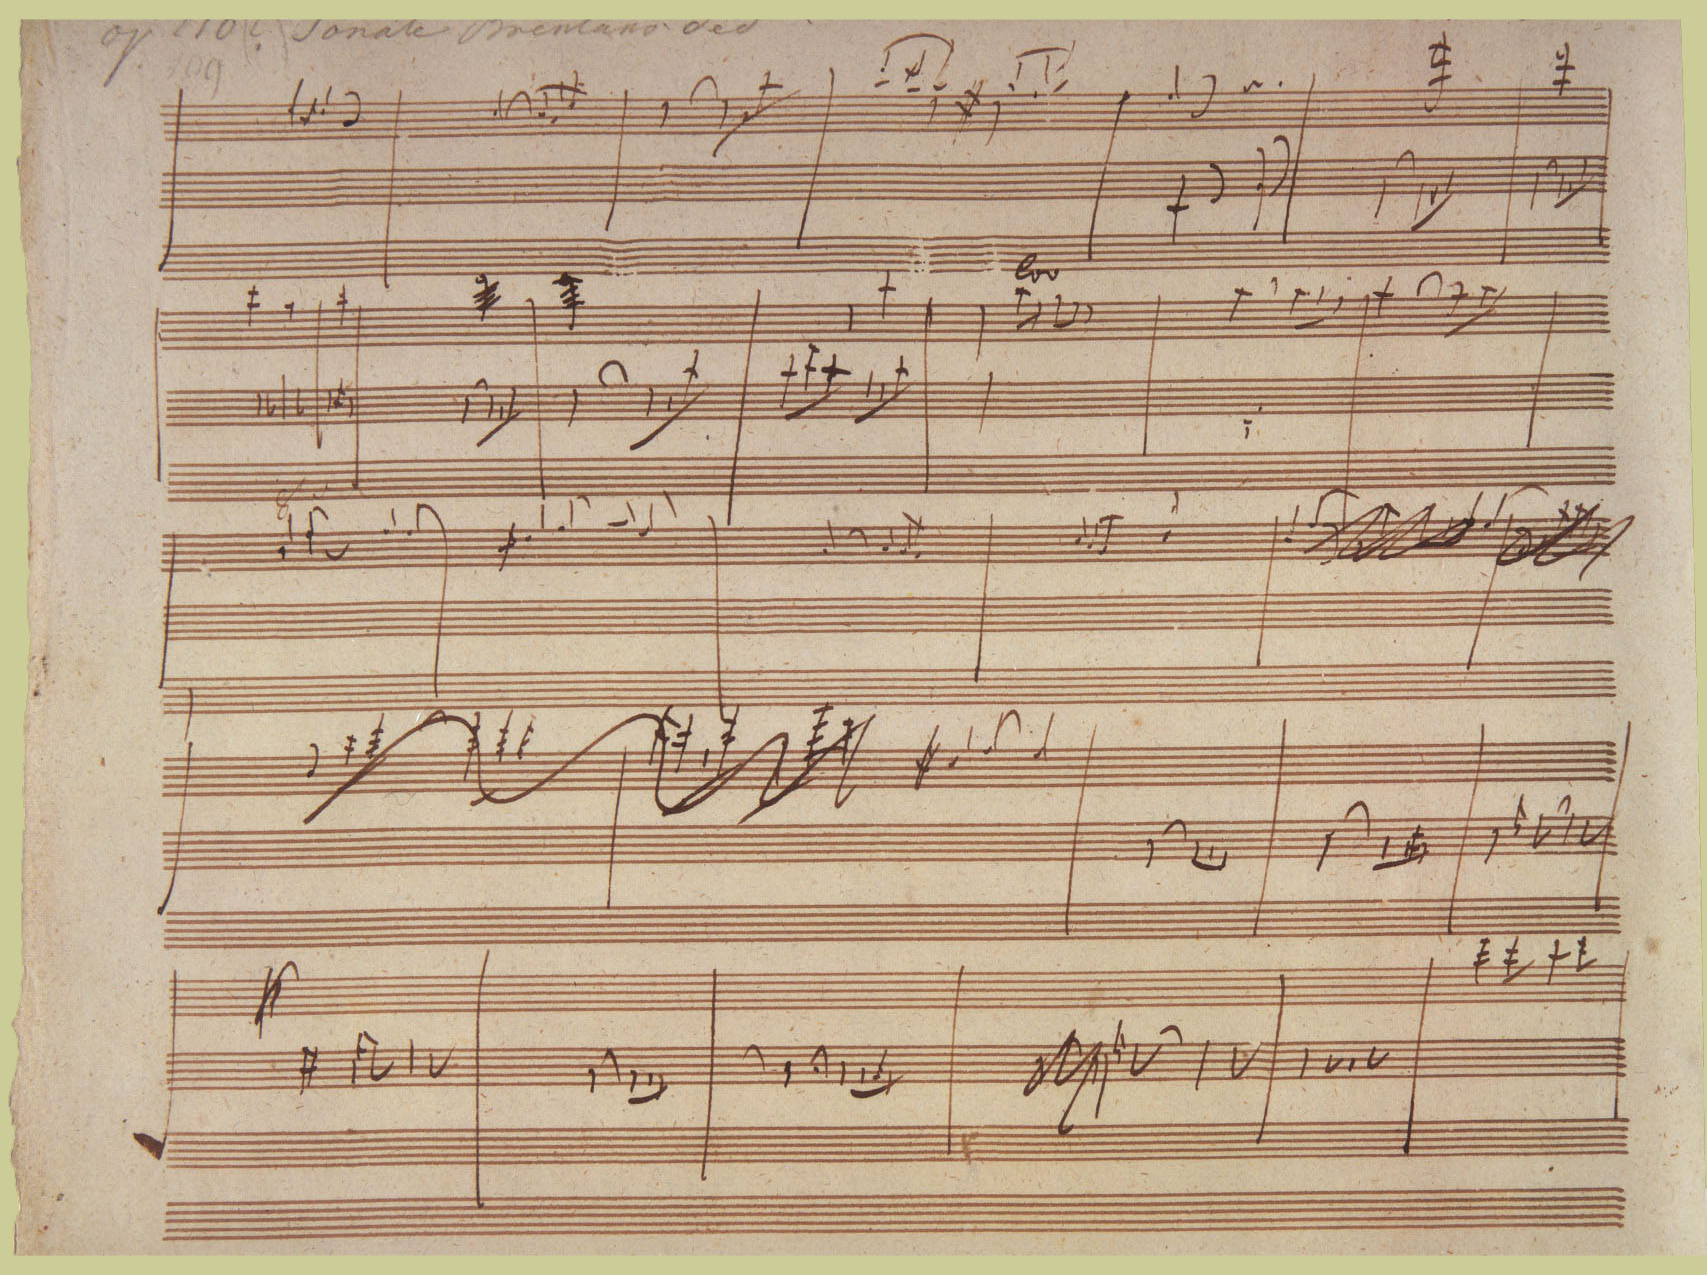 op 110(?) Sonate Brentano ded
109
loco